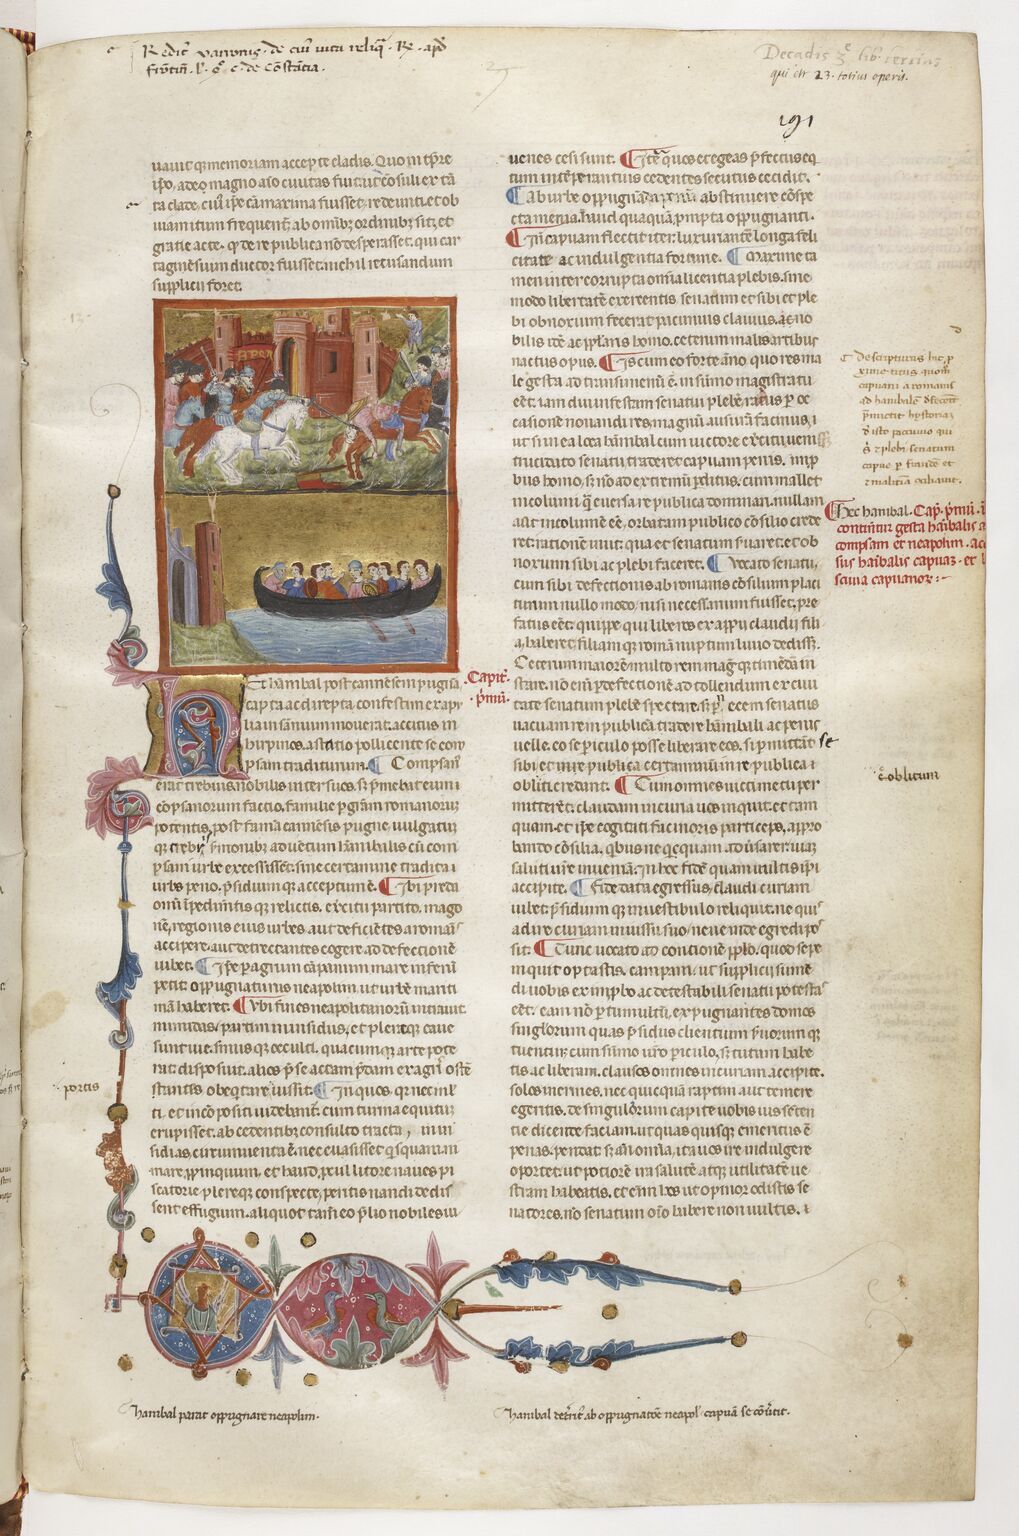 Redit varronis de
frōtin̄. l'. q̄. c. de cōstātia.
Decadis lib. tertius
qui est 23. totius operis.
191
uauit q; memoriam accepte cladis. Quo in tp̄re
ip̄o, adeo magno aīo ciuitas fuit, ut cōsuli ex tā
ta clade, cui' ip̄e cā maxima fuisset, redeunti, et ob
uiam itum frequent̄ ab omib; ordinib; sit, et
gratie acte, qd̄ de re publica nō desperasset, qui car
taginēsium ductor fuisset, nichil recusandum
supplicij foret.
Capit̄.
p̄mū.
hanibal post cannēsem pugnā
capta ac direpta confestim ex apu
lia in sāmnium mouerat, accitus in
hirpinos, a statio pollicente se com
psam traditurum. Compsan'
erat trebius nobilis inter suos, s; p̄mebat eum
cōpsanorum factio, familie p gr̄am romanorū
potentis, post famā cannēsis pugne, uulgatū
sermonib; aduētum hānibalis cū com
psam urbe excessisset, sine certamine tradita
urbs peno, p̄sidium q; acceptum ē. Ibi p̄reda
omī īpedimītis q; relictis, ex̄citu partito, mago
nē, regionis eius urbes, aut deficiētes a romāis
accipere, aut detrectantes cogere ad defectionē
iubet. Ip̄e p agrum cāpanum mare inferū
petit, oppugnaturus neapolim, ut urbē mariti
mā haberet. Vbi fines neapolitanorū intrauit,
numidas, partim in insidiis, et pleręque caue
sunt uie, sinus q; occulti, quacumq; arte pote
rat disposuit, alios p̄ se actam p̄dam ex agris ostē
stantis obeq̄tare iussit. In quos, q; nec ml'
ti, et incōpositi uidebant̄, cum turma equitū
erupisset, ab cedentib; consulto tracta, in in
sidias, circumuenta ē, nec euasisset q̄squam ni
mare ppinquum, et haud pcul litore naues pi
scatorie, pleręque conspecte, peritis nandi dedis
sent effugium. aliquot tam̄ eo p̄lio nobiles iu
portis
uenes cesi sunt. egeas p̄fectus eq
tum intēperantius cedentes secutus cecidit.
Ab urbe oppugnāda penū abstinuere cōspe
cta menia, haud quaquā pmpta oppugnanti.
In capuam flectit iter, luxuriantē longa feli
citate ac indulgentia fortune. Maxime ta
men inter corrupta omīa licentia plebis, sine
modo libertatē exercentis, senatum et sibi et ple
bi obnoxium fecerat pacuuius clauius, ac no
bilis idē ac pplaris homo, ceterum malis artibus
nactus opus. Is cum eo forte āno, quo res ma
le gesta ad transimenū ē, in sūmo magistratu
eēt, iam diu infestam senatui plebē ratus p oc
casione nouandi res magnū ausurā facinus,
ut si in ea loca hānibal cum uictore ex̄citu uenisset
trucidato senatu traderet capuam penis. imp
bus homo, s; nō ad extremū pditus, cum mallet
incolumi q̄ euersa re publica dominari, nullam
aūt incolumē eē, orbatam publico cōsilio crede
ret, rationē iniit, qua et senatum s̄uaret, et ob
noxium sibi ac plebi faceret. Vocato senatu,
cum sibi defectionis ab romanis cōsilium placi
turum nullo modo, nisi necessarium fuisset, pre
fatus eēt, quippe qui liberos ex appij claudij fili
a, haberet, filiam q; romā nuptum liuio dedisse.
Ceterum maiorē multo rem mag' q; timēdā in
stare, nō enī p defectionē ad tollendum ex ciui
tate senatum plebē spectare, s; p ecem senatus
uacuam rem publicā tradere hānibali ac penis
uelle. eo se piculo posse liberare eos, si pmittāt se
sibi et in re publica certaminū in re publica
obliti credant. Cum omnes uicti metu per
mitterēt, claudam in curia uos inquit, et tam
quam et ip̄e cogitati facinoris particeps, appro
bando cōsilia, quibus neq̄quam aduersarer, uiam
saluti ur̄e inueniā. In hec fidē quam uultis ip̄i
accipite. Fide data egressus, claudi curiam
iubet, p̄sidium q; in uestibulo reliquit, ne quis
adire curiam iniussu suo, neue inde egredi pos
sit. Tunc uocato ad contionē pplo, quod sepe
inquit optastis, campani, ut supplicij sumē
di uobis ex impbo ac detestabili senatu potestas
eēt, eam nō p tumultū, expugnantes domos
singlorum quas p̄sidiis clientum s̄uorum q;
tuentur, cum sūmo ur̄o piculo, s; tutam habe
tis ac liberam. clausos omnes in curiam accipite,
solos inermes, nec quicquā raptim aut temere
egeritis, de singulorum capite uobis ius senten
tie dicende faciam, ut quas quisq; emeritus ē
penas, pendat. s; an̄ omīa, ita uos ire indulgere
oportet, ut potiorē ira salutē atq; utilitatē ue
stram habeatis. et enī hos ut opinor odistis se
natores, nō senatum oīo habere non uultis.
capuani a romanis
ad hanibalē
p̄mictit hystoriaz
d' isto pacuuio qui
plebi senatum
capue p fraudē et
malitiam
Hec hanibal. Cap. p̄mū.
continētur gesta haībalis
compsam et neapolim.
sus haībalis capuaz. et
sciuia capuanoz.
oblitum
hanibal parat oppugnare neapolim.
hanibal ab oppugnatiōe neapol' capuā se cōu̅tit.